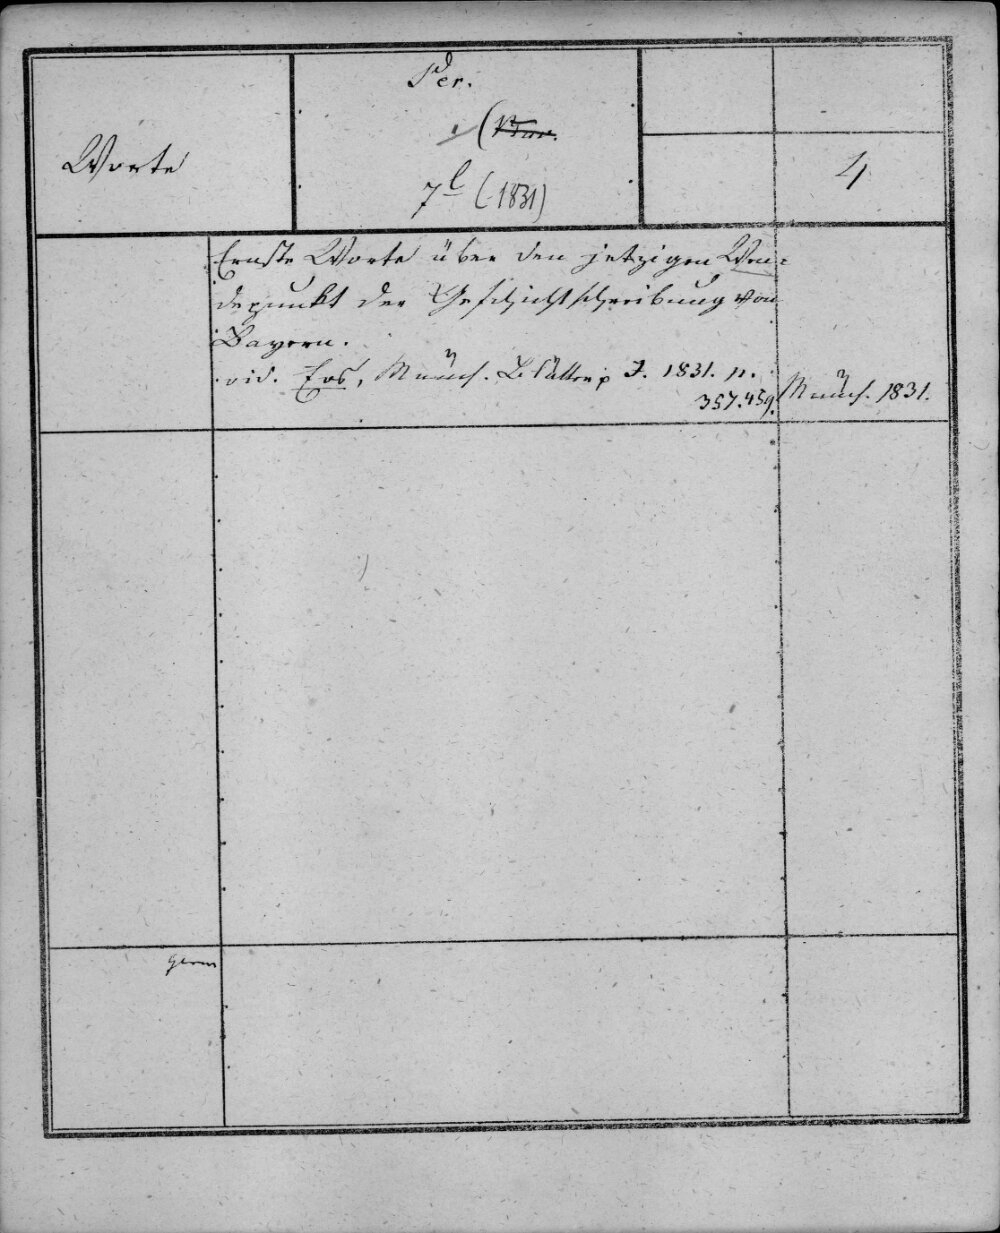 Worte
Per.
(Bav.
7l (1831)
4
Ernste Worte über den jetzigen Wen=
depunkt der Geschichtschreibung von
Bayern.
vid. Eos, Münch. Blätter J. 1831. p.
357.459.
Münch. 1831.
germ